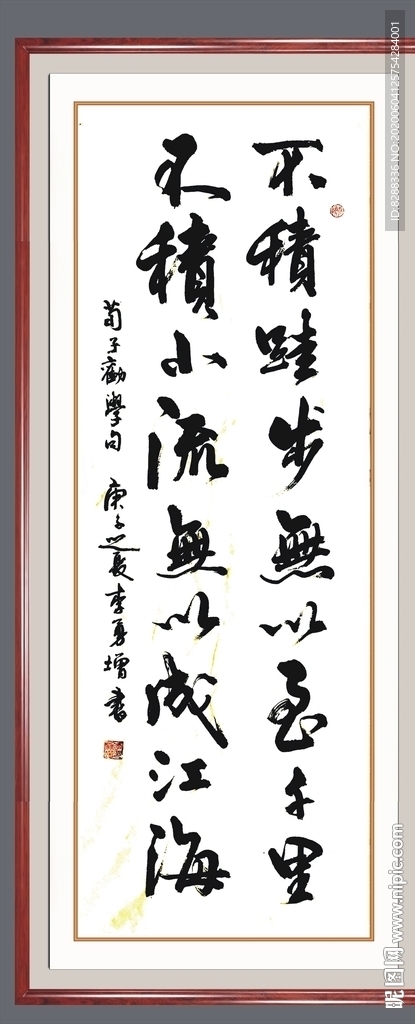 不積跬步無以至千里
不積小流無以成江海
荀子勸學句 庚子之夏李勇增書
ID:8288336 NO:20200604125754284001
昵图网 www.nipic.com